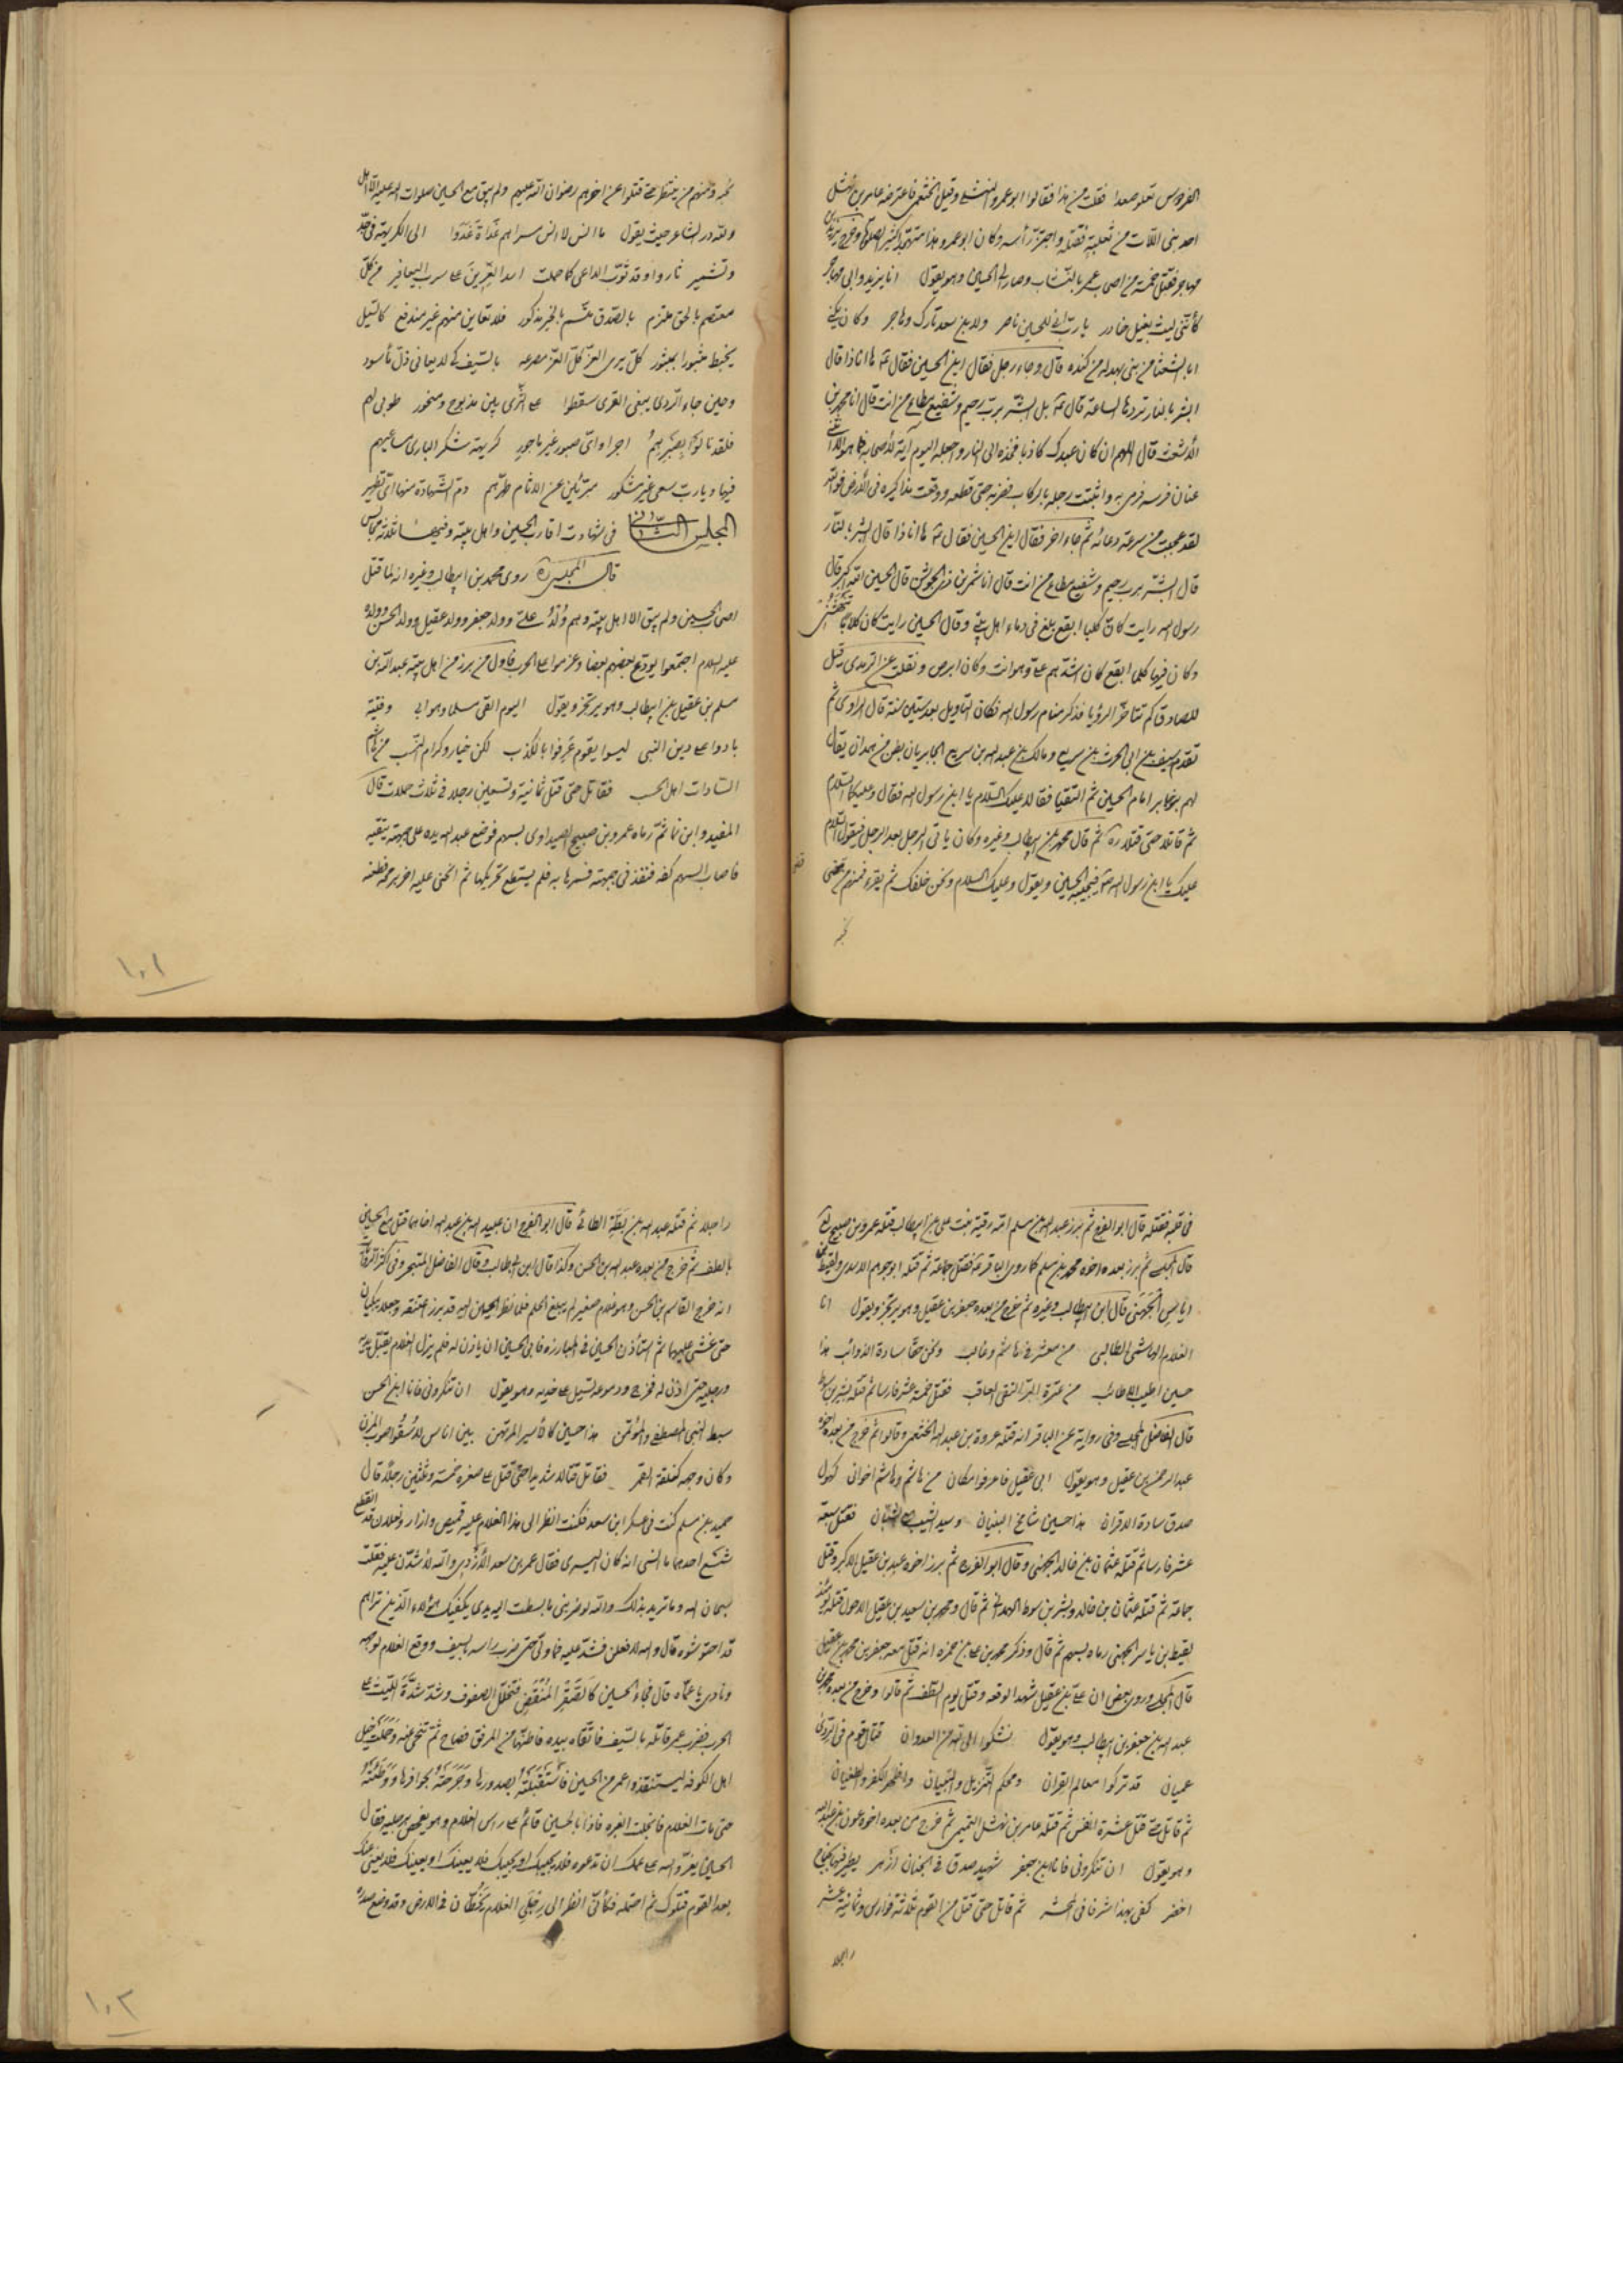 الفردوس تعلو صعدا فقلت من هذا فقالوا ابو عمرو النهشلي وقيل الخثعمي فاعترضه عامر بن نهشل
احد بني اللات من ثعلبة فقتله واجتز رأسه وكان ابو عمرو هذا متهجدا كثير الصلوة وخرج يزيد بن
مهاجر فقتل خمسة من اصحاب عمر بالنشاب وصار الى الحسين وهو يقول انا يزيد وابي مهاجر
كأنني ليث بغيل خادر يا رب اني للحسين ناصر ولابن سعد تارك وهاجر وكان يكنى
ابا الشعثا من بني بهدلة من كندة قال وجاء رجل فقال اين الحسين فقال ها انا ذا قال
ابشر بالنار تردها الساعة قال بل ابشر برب رحيم وشفيع مطاع من انت قال انا محمد بن
الاشعث قال اللهم ان كان عبدك كاذبا فخذه الى النار واجعله اليوم آية لاصحابه فما هو الا ان ثنى
عنان فرسه فرمى به واثبتت رجله بالركاب فضربه حتى قطعه ووقعت مذاكيره في الارض فوالله
لقد عجبت من سرعة دعائه ثم جاء اخر فقال اين الحسين فقال ها انا ذا قال ابشر بالنار
قال ابشر برب رحيم وشفيع مطاع من انت قال انا شمر بن ذي الجوشن قال الحسين الله اكبر قال
رسول الله رايت كان كلبا ابقع يلغ في دماء اهل بيتي وقال الحسين رايت كان كلابا تنهشني
وكان فيها كلبا ابقع كان اشدهم علي وهو انت وكان ابرص ونقلت عن الترمذي قيل
للصادق كم تتأخر الرؤيا فذكر منام رسول الله فكان التاويل بعد ستين سنة قال الراوي ثم
تقدم سيف بن ابي الحرث بن سريع ومالك بن عبد الله بن سريع الجابريان بطن من همدان يقال
لهم بنو جابر امام الحسين ثم التقيا فقالا عليك السلام يا ابن رسول الله فقال وعليكما السلام
ثم قاتلا حتى قتلا ره ثم قال محمد بن ابيطالب وغيره وكان ياتي الرجل بعد الرجل فيقول السلام
عليك يا ابن رسول الله فيجيبه الحسين ويقول وعليك السلام ونحن خلفك ثم يقرء فمنهم من قضى
نحبه
نحبه ومنهم من ينتظر حتى قتلوا عن اخرهم رضوان الله عليهم ولم يبق مع الحسين صلوات الله عليه الا اهل
ولله در الشاعر حيث يقول ما انس لا انس مسراهم غداة غدوا الى الكريهة في جد
وتشمير ثاروا وقد ثوب الداعي كما حملت اسد العرين على سرب اليعافير من كل
معتصم بالحق ملتزم بالصدق متسم بالخير مذكور فلا تعاين منهم غير مندفع كالليل
يخبط مثبورا بمثبور كل يرى العز كل العز مصرعه بالسيف كي لا يعاني ذل مأسور
وحين جاء الردى يبغي القرى سقطوا على الثرى بين مذبوح ومنحور طوبى لهم
فلقد نالوا بصبرهم اجرا واي صبور غير ماجور كريهة شكر الباري مساعيهم
فيها ويا رب سعي غير مشكور مبرئين عن الاثام طهرهم دم الشهادة منها اي تطهير
المجلس الثاني في شهادت اقارب الحسين واهل بيته وفيها ثلاثة مجالس
قال المجلسي ره روى محمد بن ابيطالب وغيره انه لما قتل
اصحاب الحسين ولم يبق الا اهل بيته وهم ولد علي وولد جعفر وولد عقيل وولد الحسن وولده
عليه السلام اجتمعوا يودع بعضهم بعضا وعزموا على الحرب فاول من برز من اهل بيته عبد الله بن
مسلم بن عقيل بن ابيطالب وهو يرتجز ويقول اليوم القى مسلما وهو ابي وفتية
بادوا على دين النبي ليسوا بقوم عرفوا بالكذب لكن خيار وكرام النسب من هاشم
السادات اهل الحسب فقاتل حتى قتل ثمانية وتسعين رجلا في ثلاث حملات قال
المفيد وابن نما ثم رماه عمرو بن صبيح الصيداوي بسهم فوضع عبد الله يده على جبهته يتقيه
فاصاب السهم كفه فنفذ في جبهته فسمرها به فلم يستطع تحريكها ثم انحنى عليه اخر برمحه فطعنه
١٠١
في قلبه فقتله قال ابو الفرج ثم برز عبد الله بن مسلم امه رقية بنت علي بن ابيطالب قتله عمرو بن صبيح
قال المجلسي ثم برز بعده اخوه محمد بن مسلم كما روى الباقر فقتل جماعة ثم قتله ابو جرهم الاسدي ولقيط
بن اياس الجهني قال ابن ابيطالب وغيره ثم خرج من بعده جعفر بن عقيل وهو يرتجز ويقول انا
الغلام الهاشمي الطالبي من معشر في هاشم وغالب ونحن حقا سادة الذوائب هذا
حسين اطيب الاطائب من عترة البر التقي العاقب فقتل خمسة عشر فارسا ثم قتله بشر بن سوط
قال الفاضل المجلسي وفي رواية عن الباقر انه قتله عروة بن عبد الله الخثعمي وقالوا ثم خرج من بعده اخوه
عبد الرحمن بن عقيل وهو يقول ابي عقيل فاعرفوا مكان من هاشم وهاشم اخواني كهول
صدق سادة الاقران هذا حسين شامخ البنيان وسيد الشيب مع الشبان فقتل سبعة
عشر فارسا ثم قتله عثمان بن خالد الجهني وقال ابو الفرج ثم برز اخوه عبد بن عقيل الاكبر وقتل
جماعة ثم قتله عثمان بن خالد وبشر بن سوط الهمداني ثم قال ومحمد بن سعيد بن عقيل الاحول قتله
لقيط بن ياسر الجهني رماه بسهم ثم قال وذكر محمد بن علي بن حمزه انه قتل معه جعفر بن محمد بن عقيل
قال المجلسي وروى بعض ان علي بن عقيل شهد الوقعه وقتل يوم الطف ثم قالوا وخرج من بعده محمد بن
عبد الله بن جعفر بن ابيطالب وهو يقول نشكوا الى الله من العدوان قتال قوم في الردى
عميان قد تركوا معالم القران ومحكم التنزيل والتبيان واظهروا الكفر والطغيان
ثم قاتل حتى قتل عشرة انفس ثم قتله عامر بن نهشل التميمي ثم خرج من بعده اخوه عون بن عبد الله
وهو يقول ان تنكروني فانا ابن جعفر شهيد صدق في الجنان ازهر يطير فيها بجناح
اخضر كفى بهذا شرفا في المحشر ثم قاتل حتى قتل من القوم ثلاثة فوارس وثمانية عشر
راجلا
راجلا ثم قتله عبد الله بن بطة الطائي قال ابو الفرج ان عبيد الله بن عبد الله اخاهما قتل مع الحسين
بالطف ثم خرج من بعده عبد الله بن الحسن وكذا قال ابن ابيطالب وقال الفاضل المتبحر وفي اكثر الروايات
انه خرج القاسم بن الحسن وهو غلام صغير لم يبلغ الحلم فلما نظر الحسين اليه قد برز اعتنقه وجعلا يبكيان
حتى غشي عليهما ثم استأذن الحسين في المبارزه فابى الحسين ان ياذن له فلم يزل الغلام يقبل يديه
ورجليه حتى اذن له فخرج ودموعه تسيل على خديه وهو يقول ان تنكروني فانا ابن الحسن
سبط النبي المصطفى والمؤتمن هذا حسين كالاسير المرتهن بين اناس لا سقوا صوب المزن
وكان وجهه كفلقة القمر فقاتل قتالا شديدا حتى قتل على صغره خمسة وثلثين رجلا قال
حميد بن مسلم كنت في عسكر ابن سعد فكنت انظر الى هذا الغلام عليه قميص وازار ونعلان قد انقطع
شسع احدهما ما انسى انه كان اليسرى فقال عمر بن سعد الازدي والله لاشدن عليه فقلت
سبحان الله وما تريد بذلك والله لو ضربني ما بسطت اليه يدي يكفيك هؤلاء الذين تراهم
قد احتوشوه قال والله لافعلن فشد عليه فما ولى حتى ضرب راسه بالسيف ووقع الغلام لوجهه
ونادى يا عماه قال فجاء الحسين كالصقر المنقض فتخلل الصفوف وشد شدة الليث على
الحرب فضرب عمر قاتله بالسيف فاتقاه بيده فاطنها من المرفق فصاح ثم تنحى عنه وحملت خيل
اهل الكوفه ليستنقذوا عمر من الحسين فاستقبلته بصدورها وجرحته بحوافرها ووطئته
حتى مات الغلام فانجلت الغبره فاذا بالحسين قائم على راس الغلام وهو يفحص برجليه فقال
الحسين يعز والله على عمك ان تدعوه فلا يجيبك او يجيبك فلا يعينك او يعينك فلا يغني عنك
بعدا لقوم قتلوك ثم احتمله فكأني انظر الى رجلي الغلام يخطان في الارض وقد وضع صدره
١٠٢